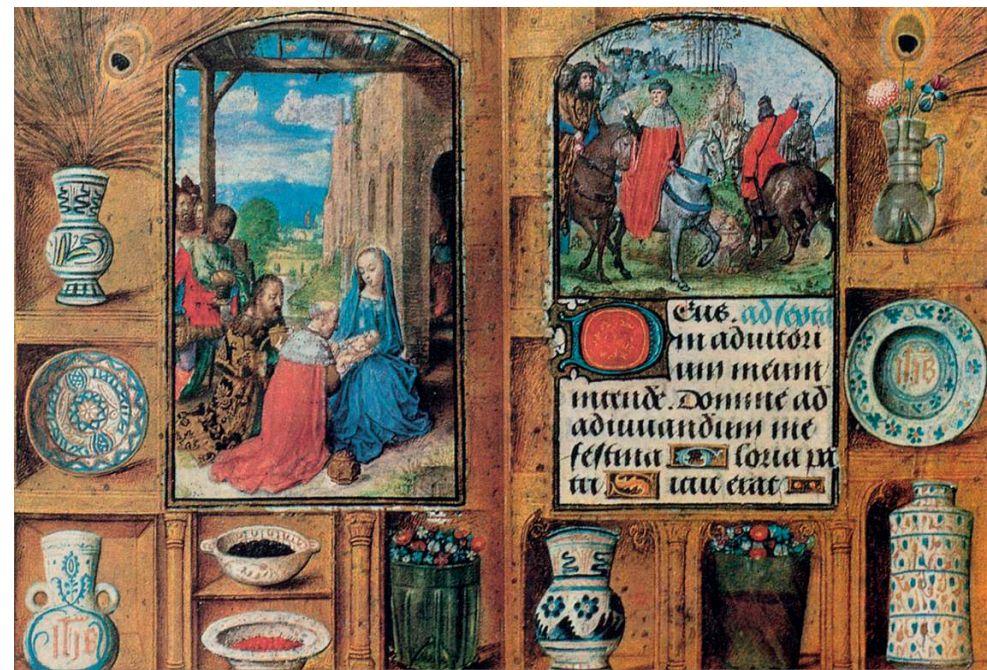 DEus. ad sexta
in adiutori
um meum
intende. Domine ad
adiuuandum me
festina Gloria pa
tri Sicut erat
ihs
ihs